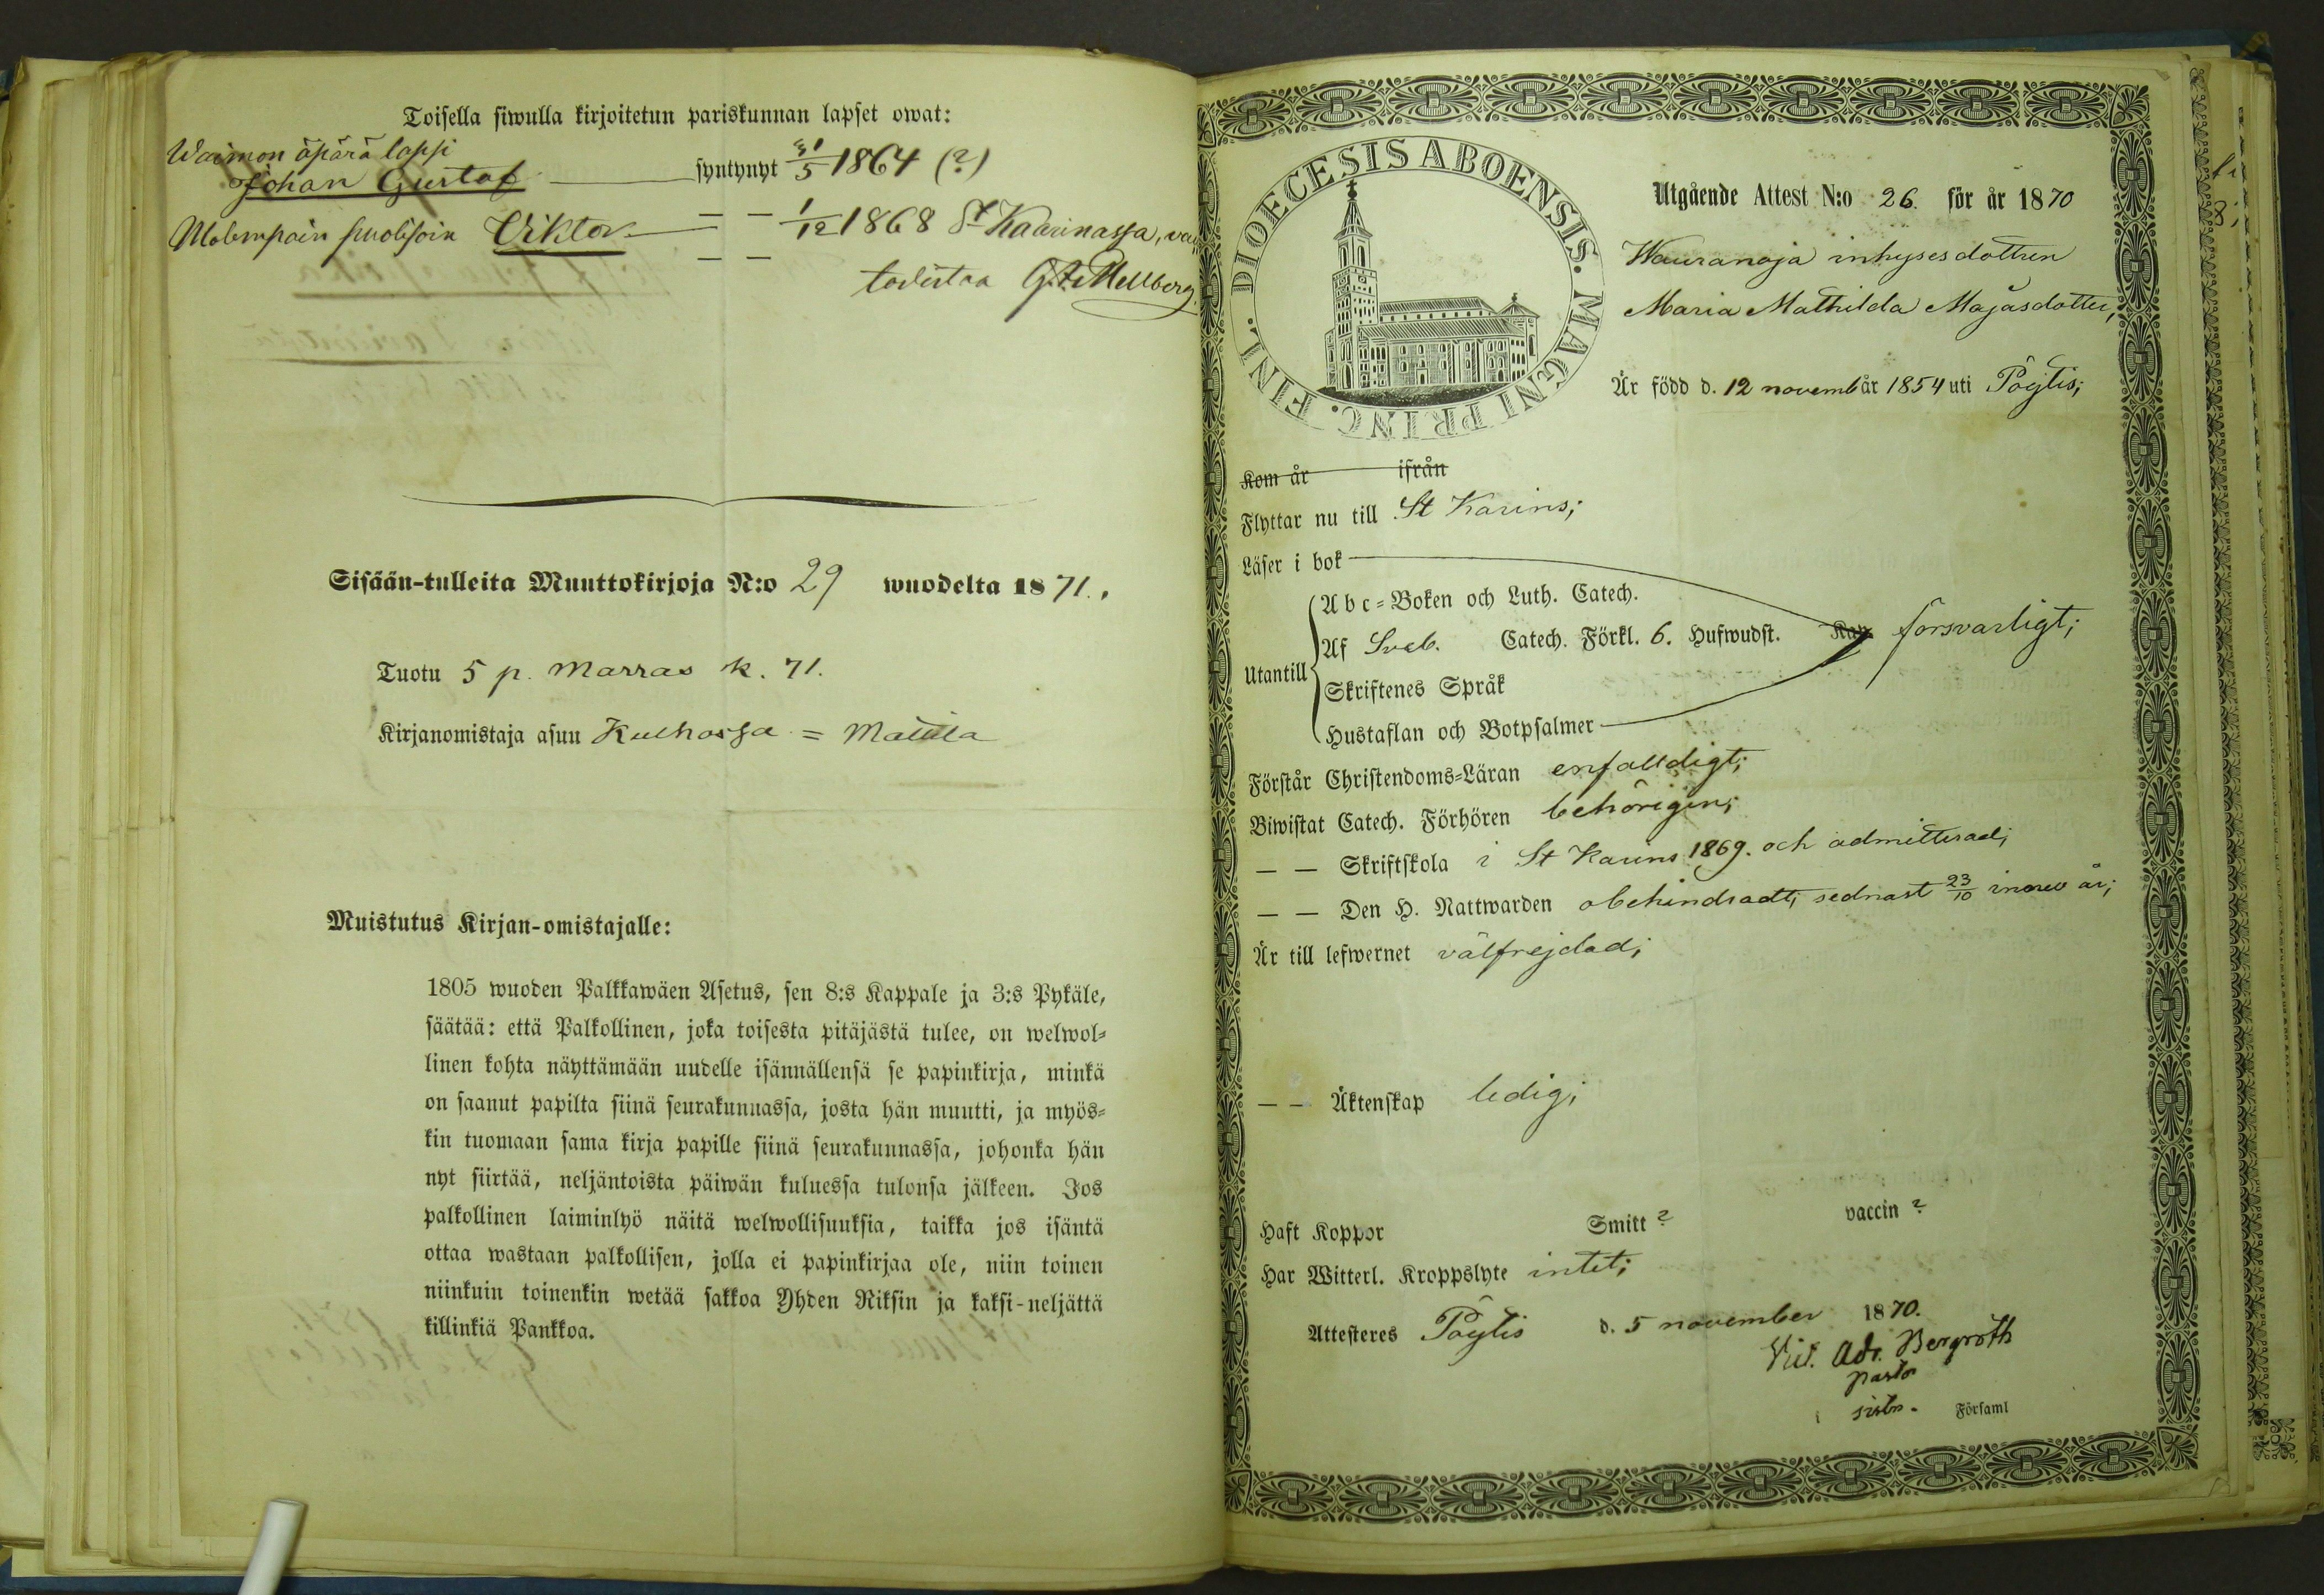 Toisella siwulla kirjoitetun pariskunnan lapset owat:
Waimon äpärä lapsi
Johan Gustaf syntynyt 31/5 1864 (?)
Molempain puolisoin Viktor — — 1/12 1868 St Kaarinassa,
— —
todistaa G. A. Mellberg.
Sisään-tulleita Muuttokirjoja N:o 29 wuodelta 1871.
Tuotu 5 p. Marras k. 71.
Kirjanomistaja asuu = Mattila
Muistutus Kirjan-omistajalle:
1805 wuoden Palkkawäen Asetus, sen 8:s Kappale ja 3:s Pykäle,
säätää: että Palkollinen, joka toisesta pitäjästä tulee, on welwol-
linen kohta näyttämään uudelle isännällensä se papinkirja, minkä
on saanut papilta siinä seurakunnassa, josta hän muutti, ja myös-
kin tuomaan sama kirja papille siinä seurakunnassa, johonka hän
nyt siirtää, neljäntoista päiwän kuluessa tulonsa jälkeen. Jos
palkollinen laiminlyö näitä welwollisuuksia, taikka jos isäntä
ottaa wastaan palkollisen, jolla ei papinkirjaa ole, niin toinen
niinkuin toinenkin wetää sakkoa Yhden Riksin ja kaksi-neljättä
killinkiä Pankkoa.
DIOECESIS ABOENSIS. MAGNI PRINC. FINL.
Utgående Attest N:o 26. för år 1870
Wauranoja inhysesdottren
Maria Mathilda Majasdotter,
Är född d. 12 novemb år 1854 uti Pöytis;
Kom år ifrån
Flyttar nu till St Karins;
Läser i bok
Abc-Boken och Luth. Catech.
Af Sveb. Catech. Förkl. 6. Hufwudst. Kan försvarligt;
Utantill
Skriftenes Språk
Hustaflan och Botpsalmer
Förstår Christendoms-Läran enfalldigt;
Biwistat Catech. Förhören behörigen;
— — Skriftskola i St Karins 1869. och admitterad;
— — Den H. Nattwarden obehindradt, sednast 23/10 innev år;
Är till lefwernet välfrejdad;
— — Äktenskap ledig;
Haft Koppor Smitt ? vaccin ?
Har Witterl. Kroppslyte intet;
Attesteras Pöytis d. 5 november 1870.
Vict. Adr. Bergroth
pastor
i Församl